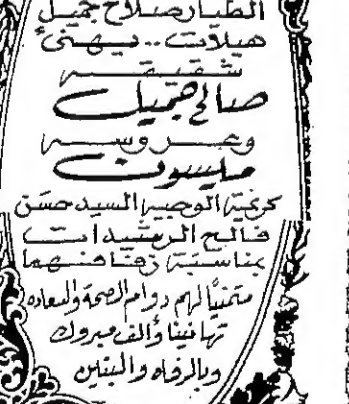 الطيار صلاح جميل
هيلات .. يهنئ
شقيقه
صالح جميل
وعروسه
ميسون
كريمة الوجيه السيد حسن
فالح الرشيدات
بمناسبة زفافهما
متمنياً لهم دوام الصحة والسعاده
تهانينا وألف مبروك
وبالرفاه والبنين